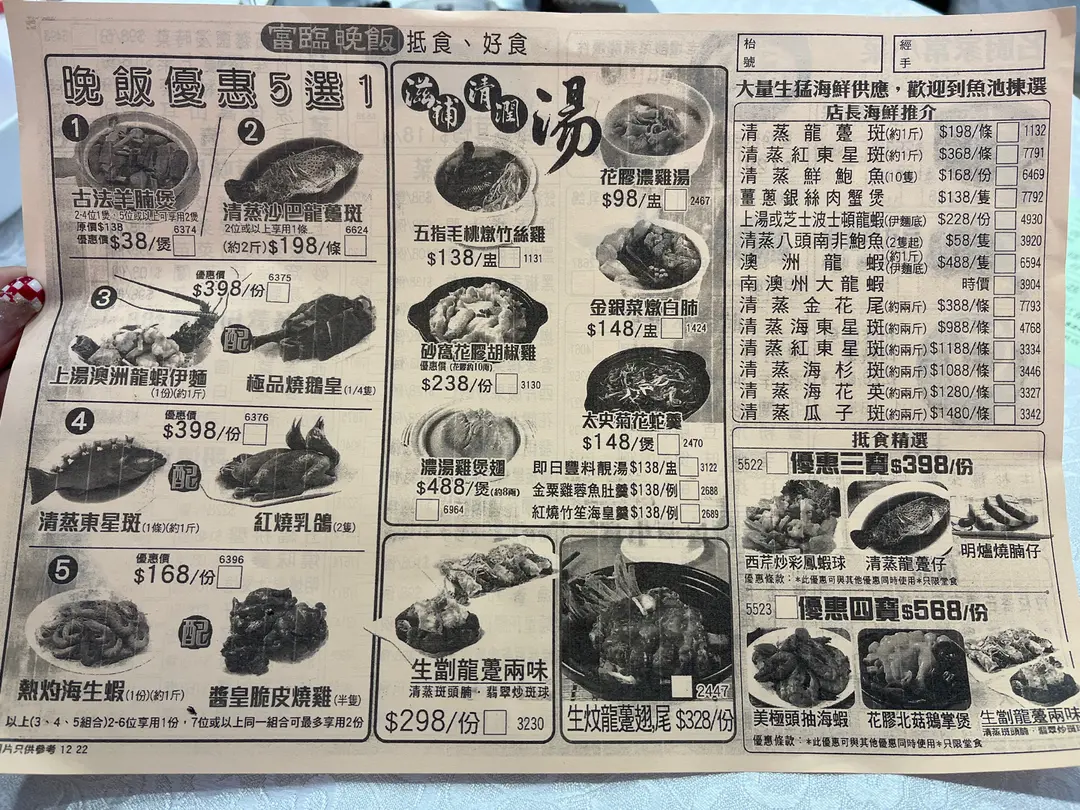 富臨晚飯 抵食、好食
晚飯優惠5選1
1
古法羊腩煲
2-4位1煲、5位或以上可享用2煲
原價$138
優惠價$38/煲 6374
2
清蒸沙巴龍躉斑
2位或以上享用1條 6624
(約2斤)$198/條
3
優惠價 6375
$398/份
配
上湯澳洲龍蝦伊麵
(1份)(約1斤)
極品燒鵝皇(1/4隻)
4
優惠價 6376
$398/份
配
清蒸東星斑(1條)(約1斤)
紅燒乳鴿(2隻)
5
優惠價 6396
$168/份
配
熱灼海生蝦(1份)(約1斤)
醬皇脆皮燒雞(半隻)
以上(3、4、5組合)2-6位享用1份,7位或以上同一組合可最多享用2份
片只供參考 12 22
滋補清潤湯
花膠濃雞湯
$98/盅 2467
五指毛桃燉竹絲雞
$138/盅 1131
金銀菜燉白肺
$148/盅 1424
砂窩花膠胡椒雞
優惠價(花膠約10兩)
$238/份 3130
太史菊花蛇羹
$148/煲 2470
濃湯雞煲翅
$488/煲(約8兩)
6964
即日豐料靚湯$138/盅 3122
金粟雞蓉魚肚羹$138/例 2688
紅燒竹笙海皇羹$138/例 2689
生劏龍躉兩味
清蒸斑頭腩·翡翠炒斑球
$298/份 3230
2447
生炆龍躉翅,尾 $328/份
枱號
經手
大量生猛海鮮供應,歡迎到魚池揀選
店長海鮮推介
清蒸龍躉斑(約1斤) $198/條 1132
清蒸紅東星斑(約1斤) $368/條 7791
清蒸鮮鮑魚(10隻) $168/份 6469
薑蔥銀絲肉蟹煲 $138/隻 7792
上湯或芝士波士頓龍蝦(伊麵底) $228/份 4930
清蒸八頭南非鮑魚(2隻起) $58/隻 3920
澳洲龍蝦(約1斤)(伊麵底) $488/隻 6594
南澳州大龍蝦 時價 3904
清蒸金花尾(約兩斤) $388/條 7793
清蒸海東星斑(約兩斤) $988/條 4768
清蒸紅東星斑(約兩斤) $1188/條 3334
清蒸海杉斑(約兩斤) $1088/條 3446
清蒸海花英(約兩斤) $1280/條 3327
清蒸瓜子斑(約兩斤) $1480/條 3342
抵食精選
5522 優惠三寶$398/份
西芹炒彩鳳蝦球
清蒸龍躉仔
明爐燒腩仔
優惠條款:*此優惠可與其他優惠同時使用*只限堂食
5523 優惠四寶$568/份
美極頭抽海蝦
花膠北菇鵝掌煲
生劏龍躉兩味
清蒸斑頭腩·翡翠炒斑球
優惠條款:*此優惠可與其他優惠同時使用*只限堂食